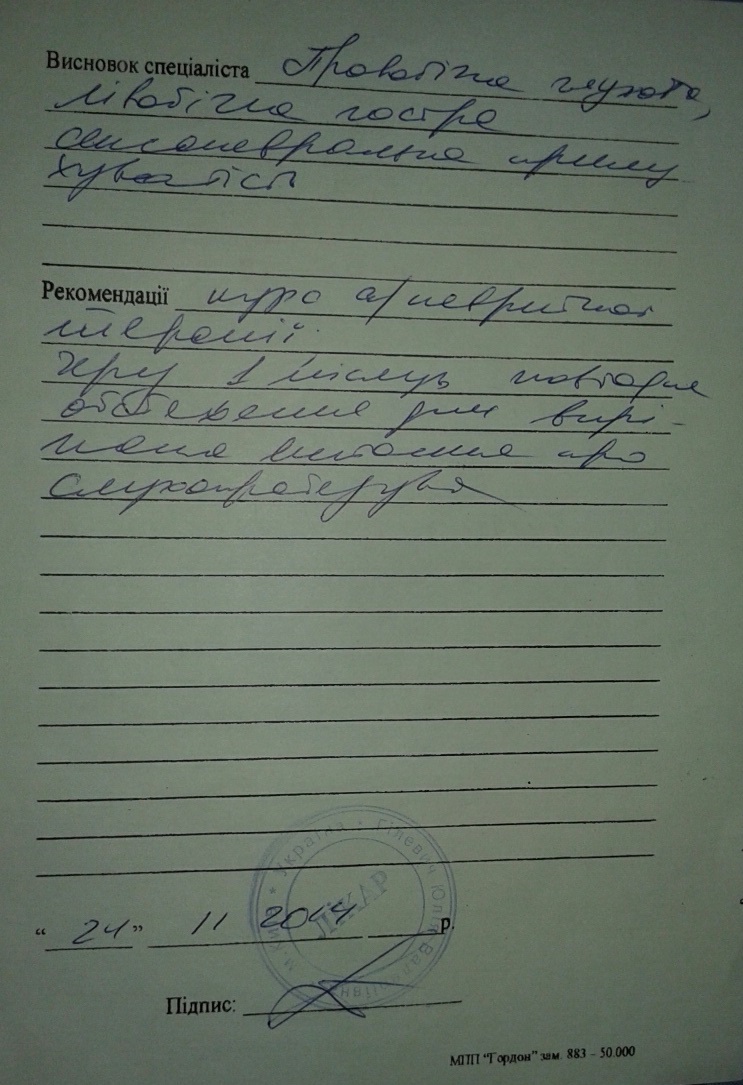 Висновок спеціаліста Правобічна глухота,
лівобічна гостра
сенсоневральна приглу
хуватість
Рекомендації курс а/невритної
терапії.
Через 1 місяць повторне
обстеження для вирі-
шення питання про
слухопротезування
* Україна * Гілевич Юлія * м. Київ
ЛІКАР
“ 24 ” 11 2014 р.
Підпис:
МПП “Гордон” зам. 883 – 50.000